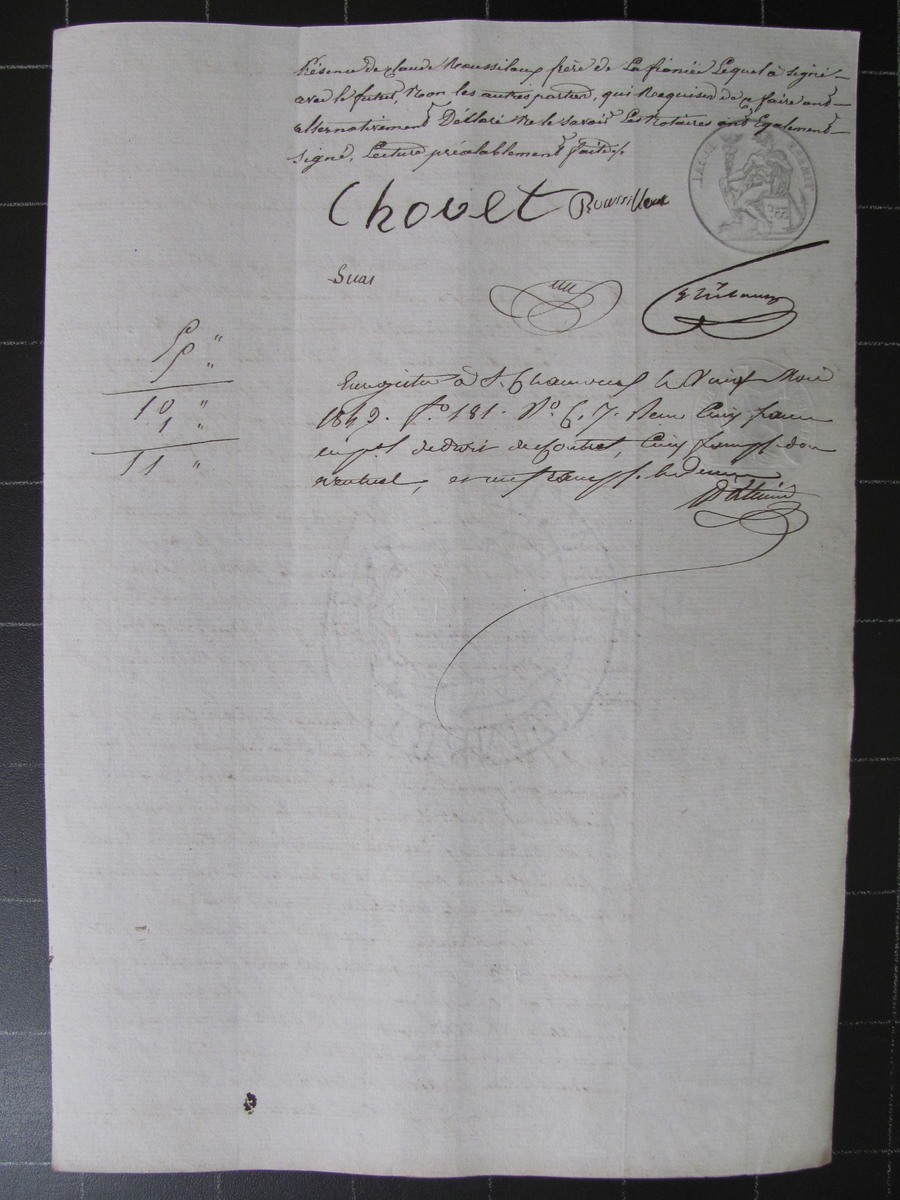 Présence de Claude Roussilloux frère de La fiancée Lequel a signé
avec le futur, Non les autres parties, qui Requises de ce faire ont
alternativement Déclaré Ne le savoir Les Notaires ont Egalement
signé, Lecture préalablement faite
Chovet Roussilloux
5 "
5 "
10 "
1 "
11 "
Enregistré à St. Chamond le Mars
1849. fo. 181. No. 6. 7. Reçu Cinq francs
de Contrat, Cinq don
éventuel, et un franc le Décime